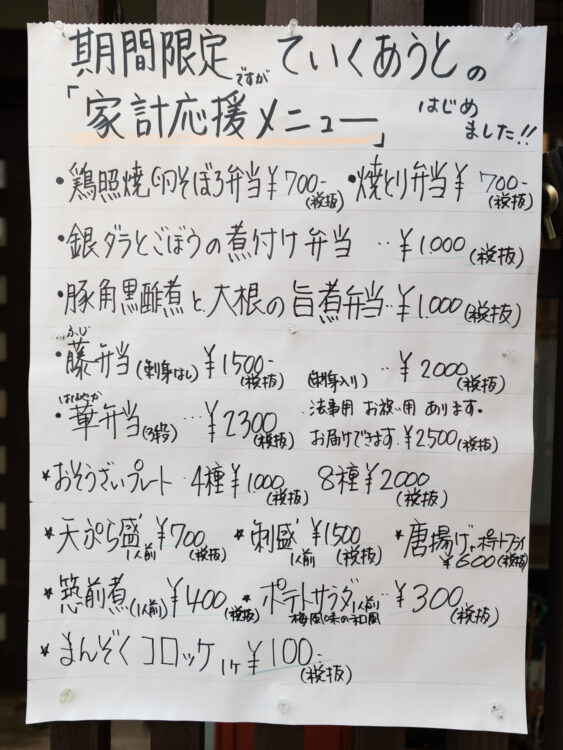 期間限定ですが ていくあうとの
「家計応援メニュー」 はじめました!!
・鶏照焼 卵そぼろ弁当 ¥700-(税抜) ・焼とり弁当 ¥700-(税抜)
・銀ダラとごぼうの煮付け弁当 ‥¥1.000(税抜)
・豚角黒酢煮と大根の旨煮弁当‥¥1.000(税抜)
ふじ
・藤弁当(刺身なし) ¥1500-(税抜) (刺身入り) ‥¥2000(税抜)
はなやか
・華弁当(3段) …¥2300(税抜) 法事用 お祝い用 あります。
お届けできます.¥2500(税抜)
★おそうざいプレート‥4種¥1.000(税抜) 8種¥2000(税抜)
★天ぷら盛 1人前 ¥700(税抜) ★刺盛 1人前 ¥1500(税抜) ★唐揚げ、ポテトフライ ¥600(税抜)
★筑前煮(1人前)¥400(税抜) ★ポテトサラダ1人前‥¥300(税抜)
梅風味の和風
★まんぞくコロッケ 1ケ ¥100-(税抜)